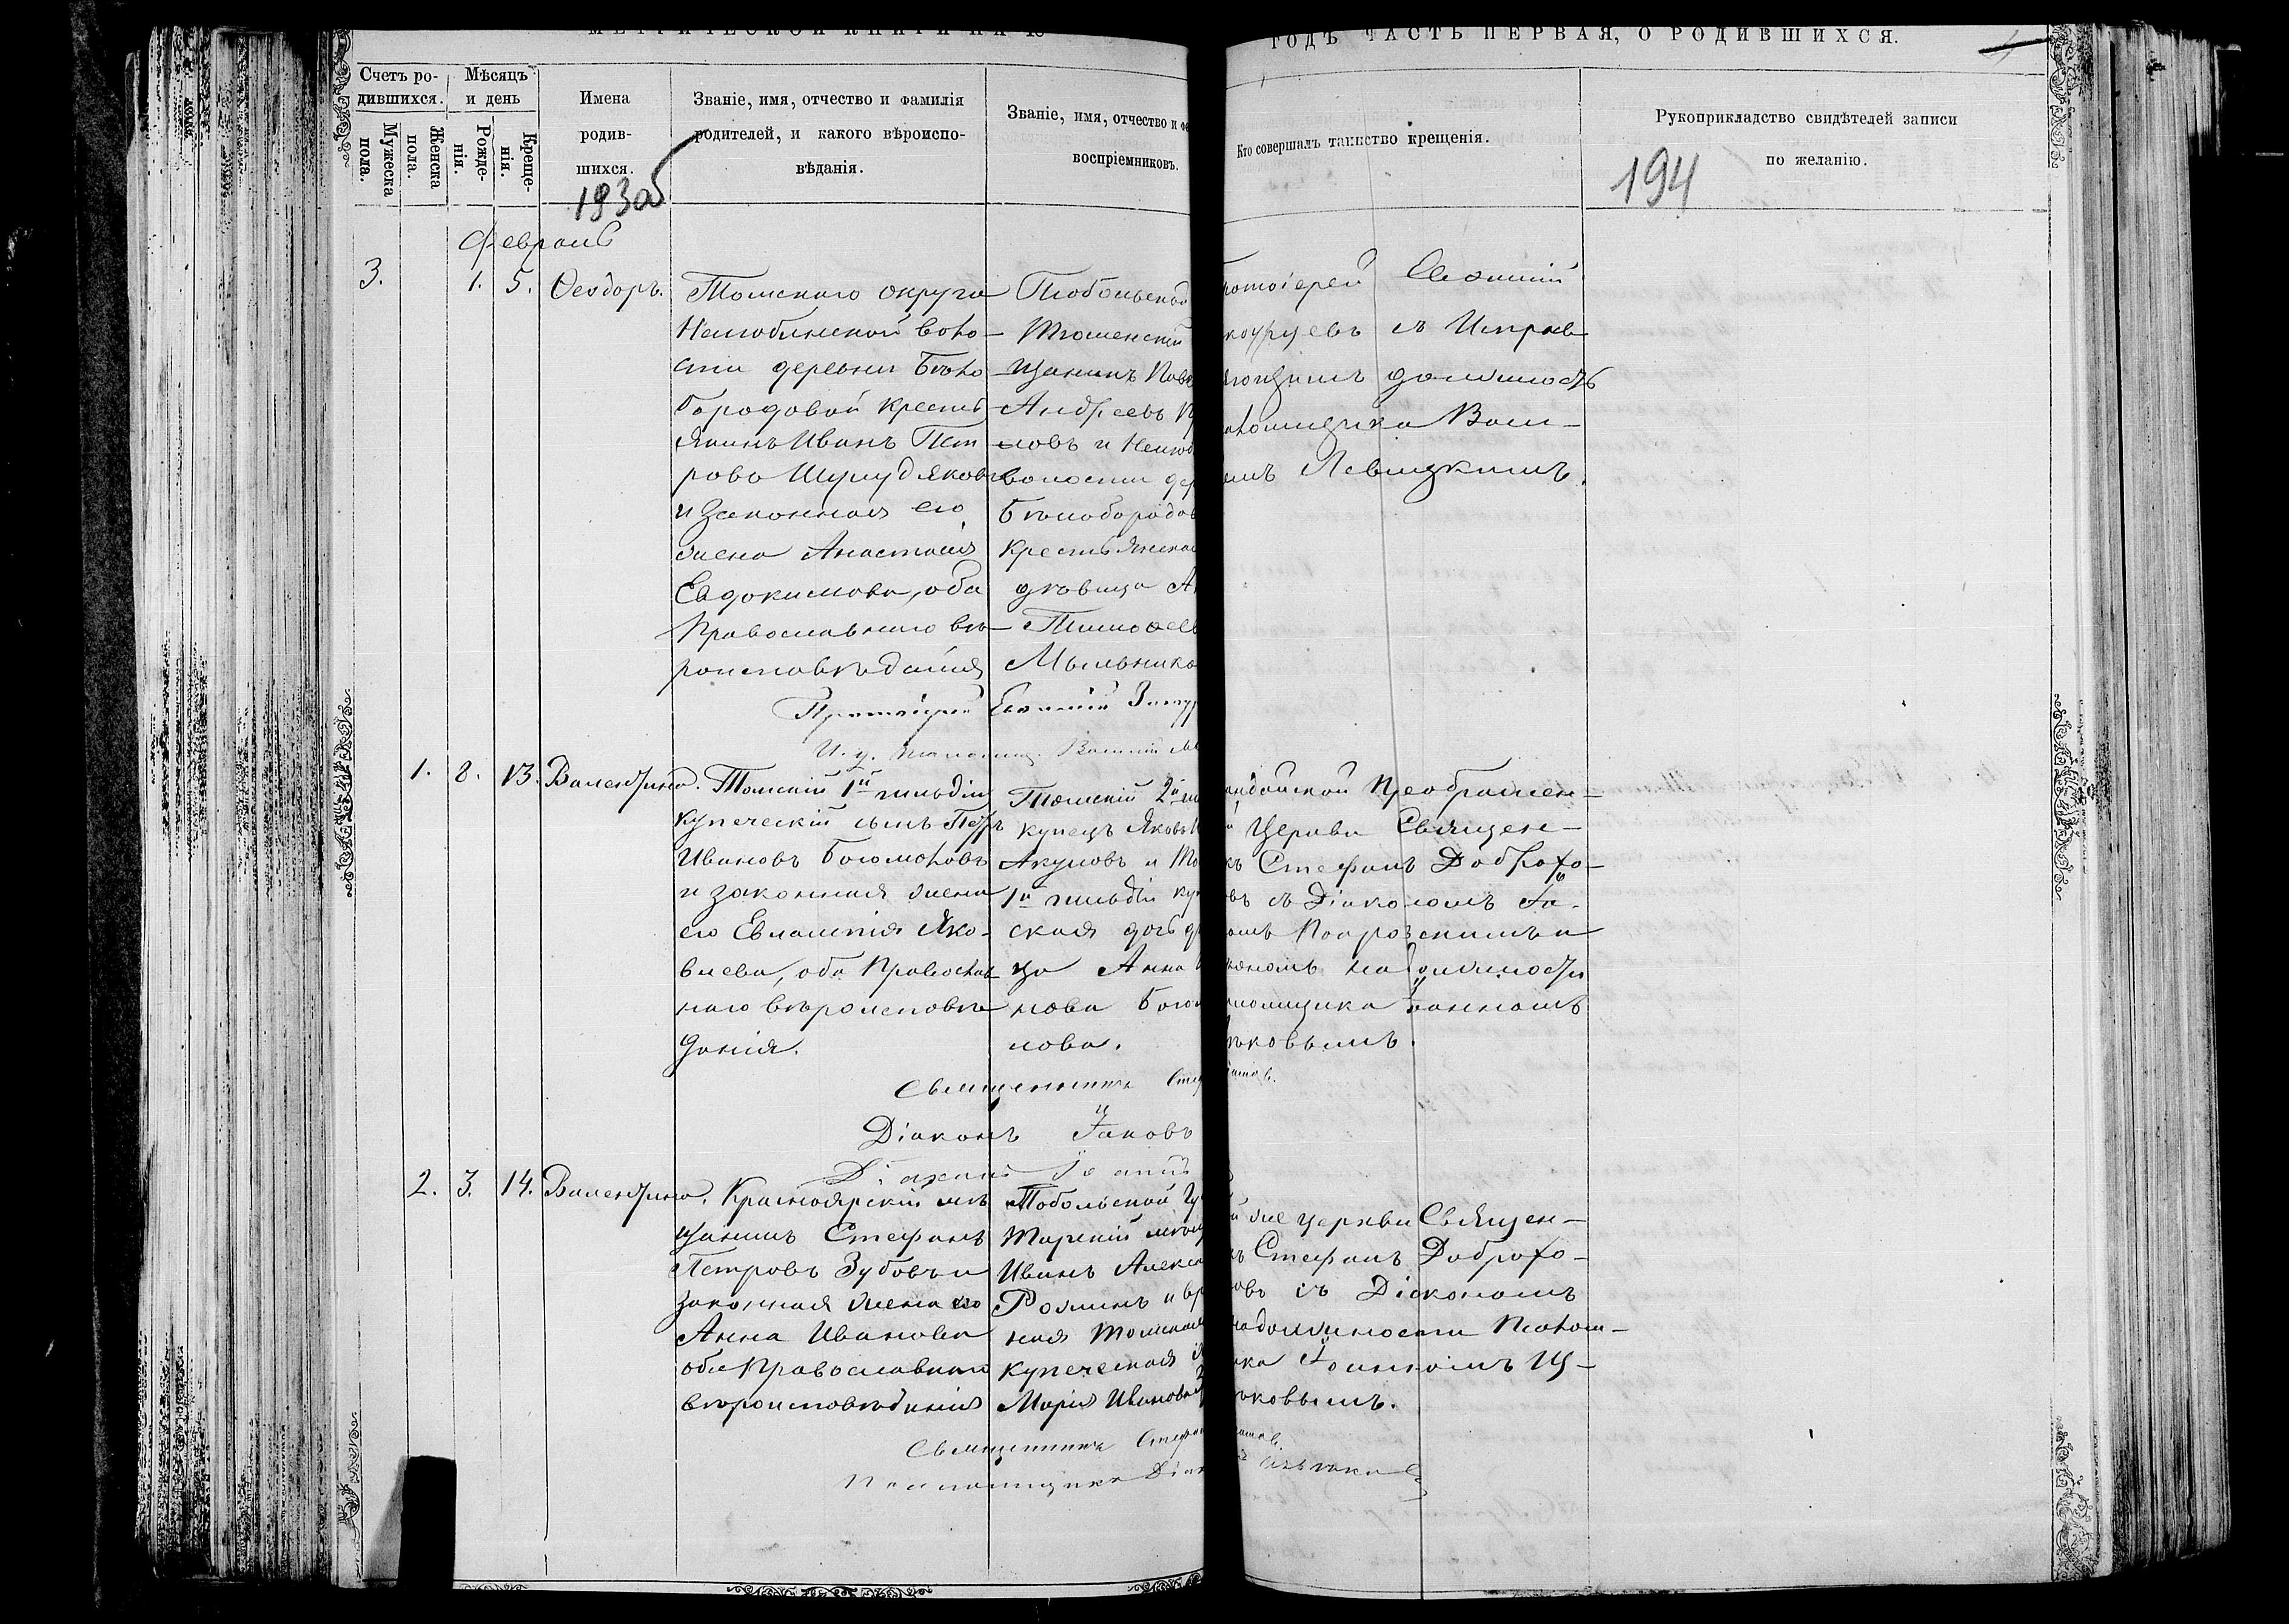 МЕТРИЧЕСКОЙ КНИГИ НА 18
ГОДЪ ЧАСТЬ ПЕРВАЯ, О РОДИВШИХСЯ.
Счетъ ро-
дившихся.
Мужеска
пола.
Женска
пола.
Мѣсяцъ
и день
Рожде-
нія.
Креще-
нія.
Имена
родив-
шихся.
Званіе, имя, отчество и фамилія
родителей, и какого вѣроиспо-
вѣданія.
Званіе, имя, отчество и фа
воспріемниковъ.
Кто совершалъ таинство крещенія.
Рукоприкладство свидѣтелей записи
по желанію.
193об
194
Февраль
3. 1. 5. Ѳеодоръ.
Томскаго округа
Нелюбинской воло-
сти деревни Бѣло
бородовой кресть
янинъ Иванъ Пет
ровъ Шумудяковъ
и законная его
жена Анастасія
Евдокимова, оба
Православнаго вѣ-
роисповѣданія
Тобольской
Тюменскій
щанинъ Пав
Андреевъ
ловъ и Нелюб
волости дер
Бѣлобородов
Крестьянская
дѣвица А
Тимоѳеев
Мыльнико
ротоіерей Евѳимій
съ Исправ
ляющимъ должность
аломщика Васи-
емъ Левицкимъ.
Протоіерей Евѳимій
И. д. псаломщ. Василій Ле
1. 8. 13. Валентина.
Томскій 1й гильдіи
купеческій сынъ Петръ
Ивановъ Богомоловъ
и законная жена
его Евлампія Яко-
влева, оба Православ
наго вѣроисповѣ
данія.
Томскій 2й ги
купецъ Яковъ И
Акуловъ и То
1й гильдіи куп
ская дочь дѣ
ца Анна И
нова Богом
лова.
Преображен-
й Церкви Священ-
къ Стефанъ Доброхо-
овъ съ Діакономъ Іа-
Покровскимъ и
кономъ на должности
аломщика Іоанномъ
ьковымъ.
Священникъ Стеф
Діаконъ Іаковъ
Діаконъ Іоаннъ
2. 3. 14. Валентина.
Красноярскій мѣ
щанинъ Стефанъ
Петровъ Зубовъ и
законная жена его
Анна Иванова
оба Православнаго
вѣроисповѣданія
Тобольской Гу
Тарскій мѣщ
Иванъ Алекса
Рожинъ и
ная Томская
купеческая
Марія Иванова
й же церкви Священ-
ъ Стефанъ Доброхо-
овъ съ Діакономъ
на должности Псалом-
ика Іоанномъ Щ-
ьковымъ.
Священникъ Стефа
Псаломщикъ Діак